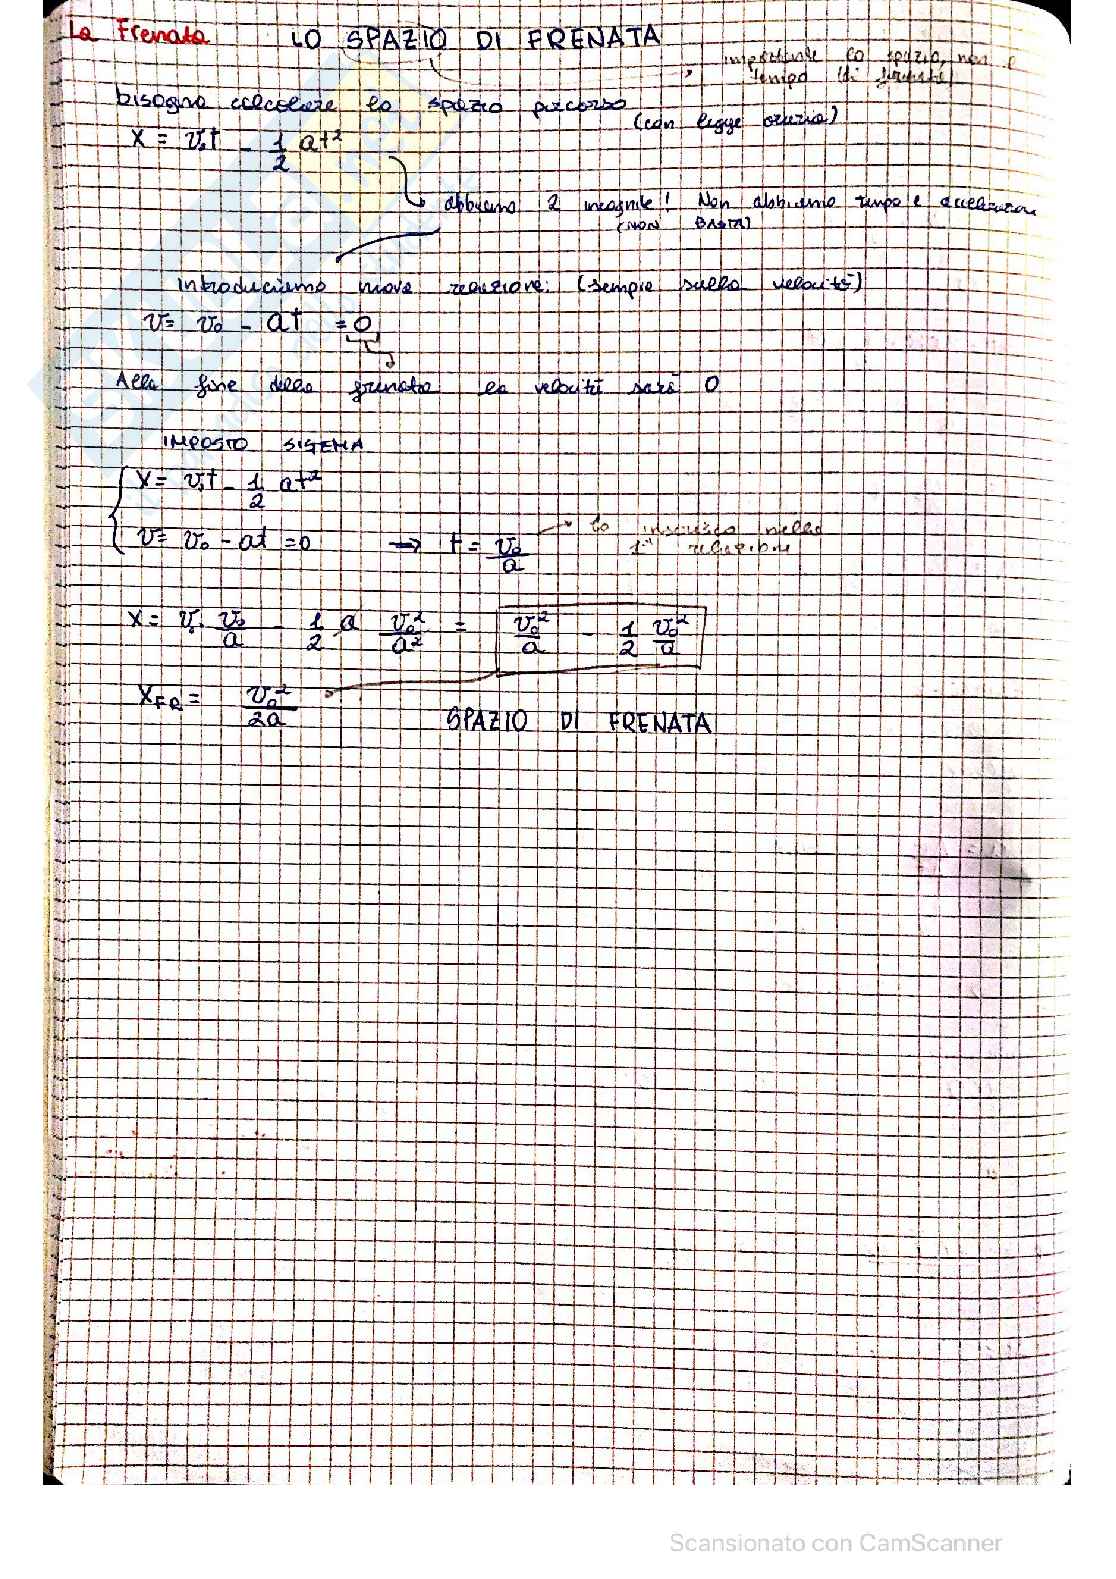 La Frenata
LO SPAZIO DI FRENATA
importante lo spazio, non il
tempo (di frenata)
bisogna calcolare lo spazio percorso
(con legge oraria)
x = v₀t - 1/2 at²
abbiamo 2 incognite! Non abbiamo tempo e accelerazione
(NON BASTA)
Introduciamo nuova relazione: (sempre sulla velocità)
v = v₀ - at = 0
Alla fine della frenata la velocità sarà 0
IMPOSTO SISTEMA
x = v₀t - 1/2 at²
v = v₀ - at = 0 → t = v₀/a
lo inserisco nella
1ª relazione
x = v₀ · v₀/a - 1/2 a v₀²/a² = v₀²/a - 1/2 v₀²/a
x_FR = v₀²/2a
SPAZIO DI FRENATA
Scansionato con CamScanner